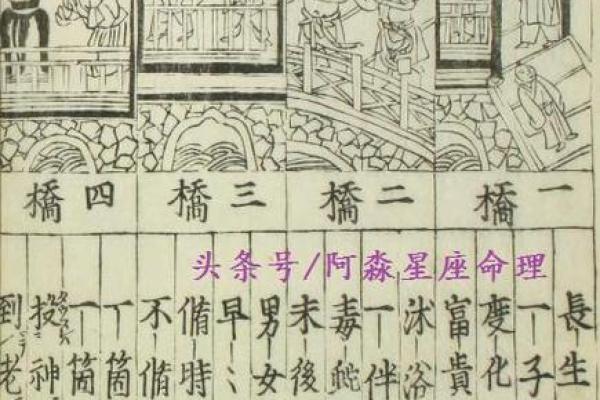 一橋
二橋
三橋
四橋
长生
一子
變化
富貴
沐浴
一伴
毒虵
未後
男女
早〻
偹時
不偹
丁箇
一箇
投神
到老
头条号/阿淼星座命理